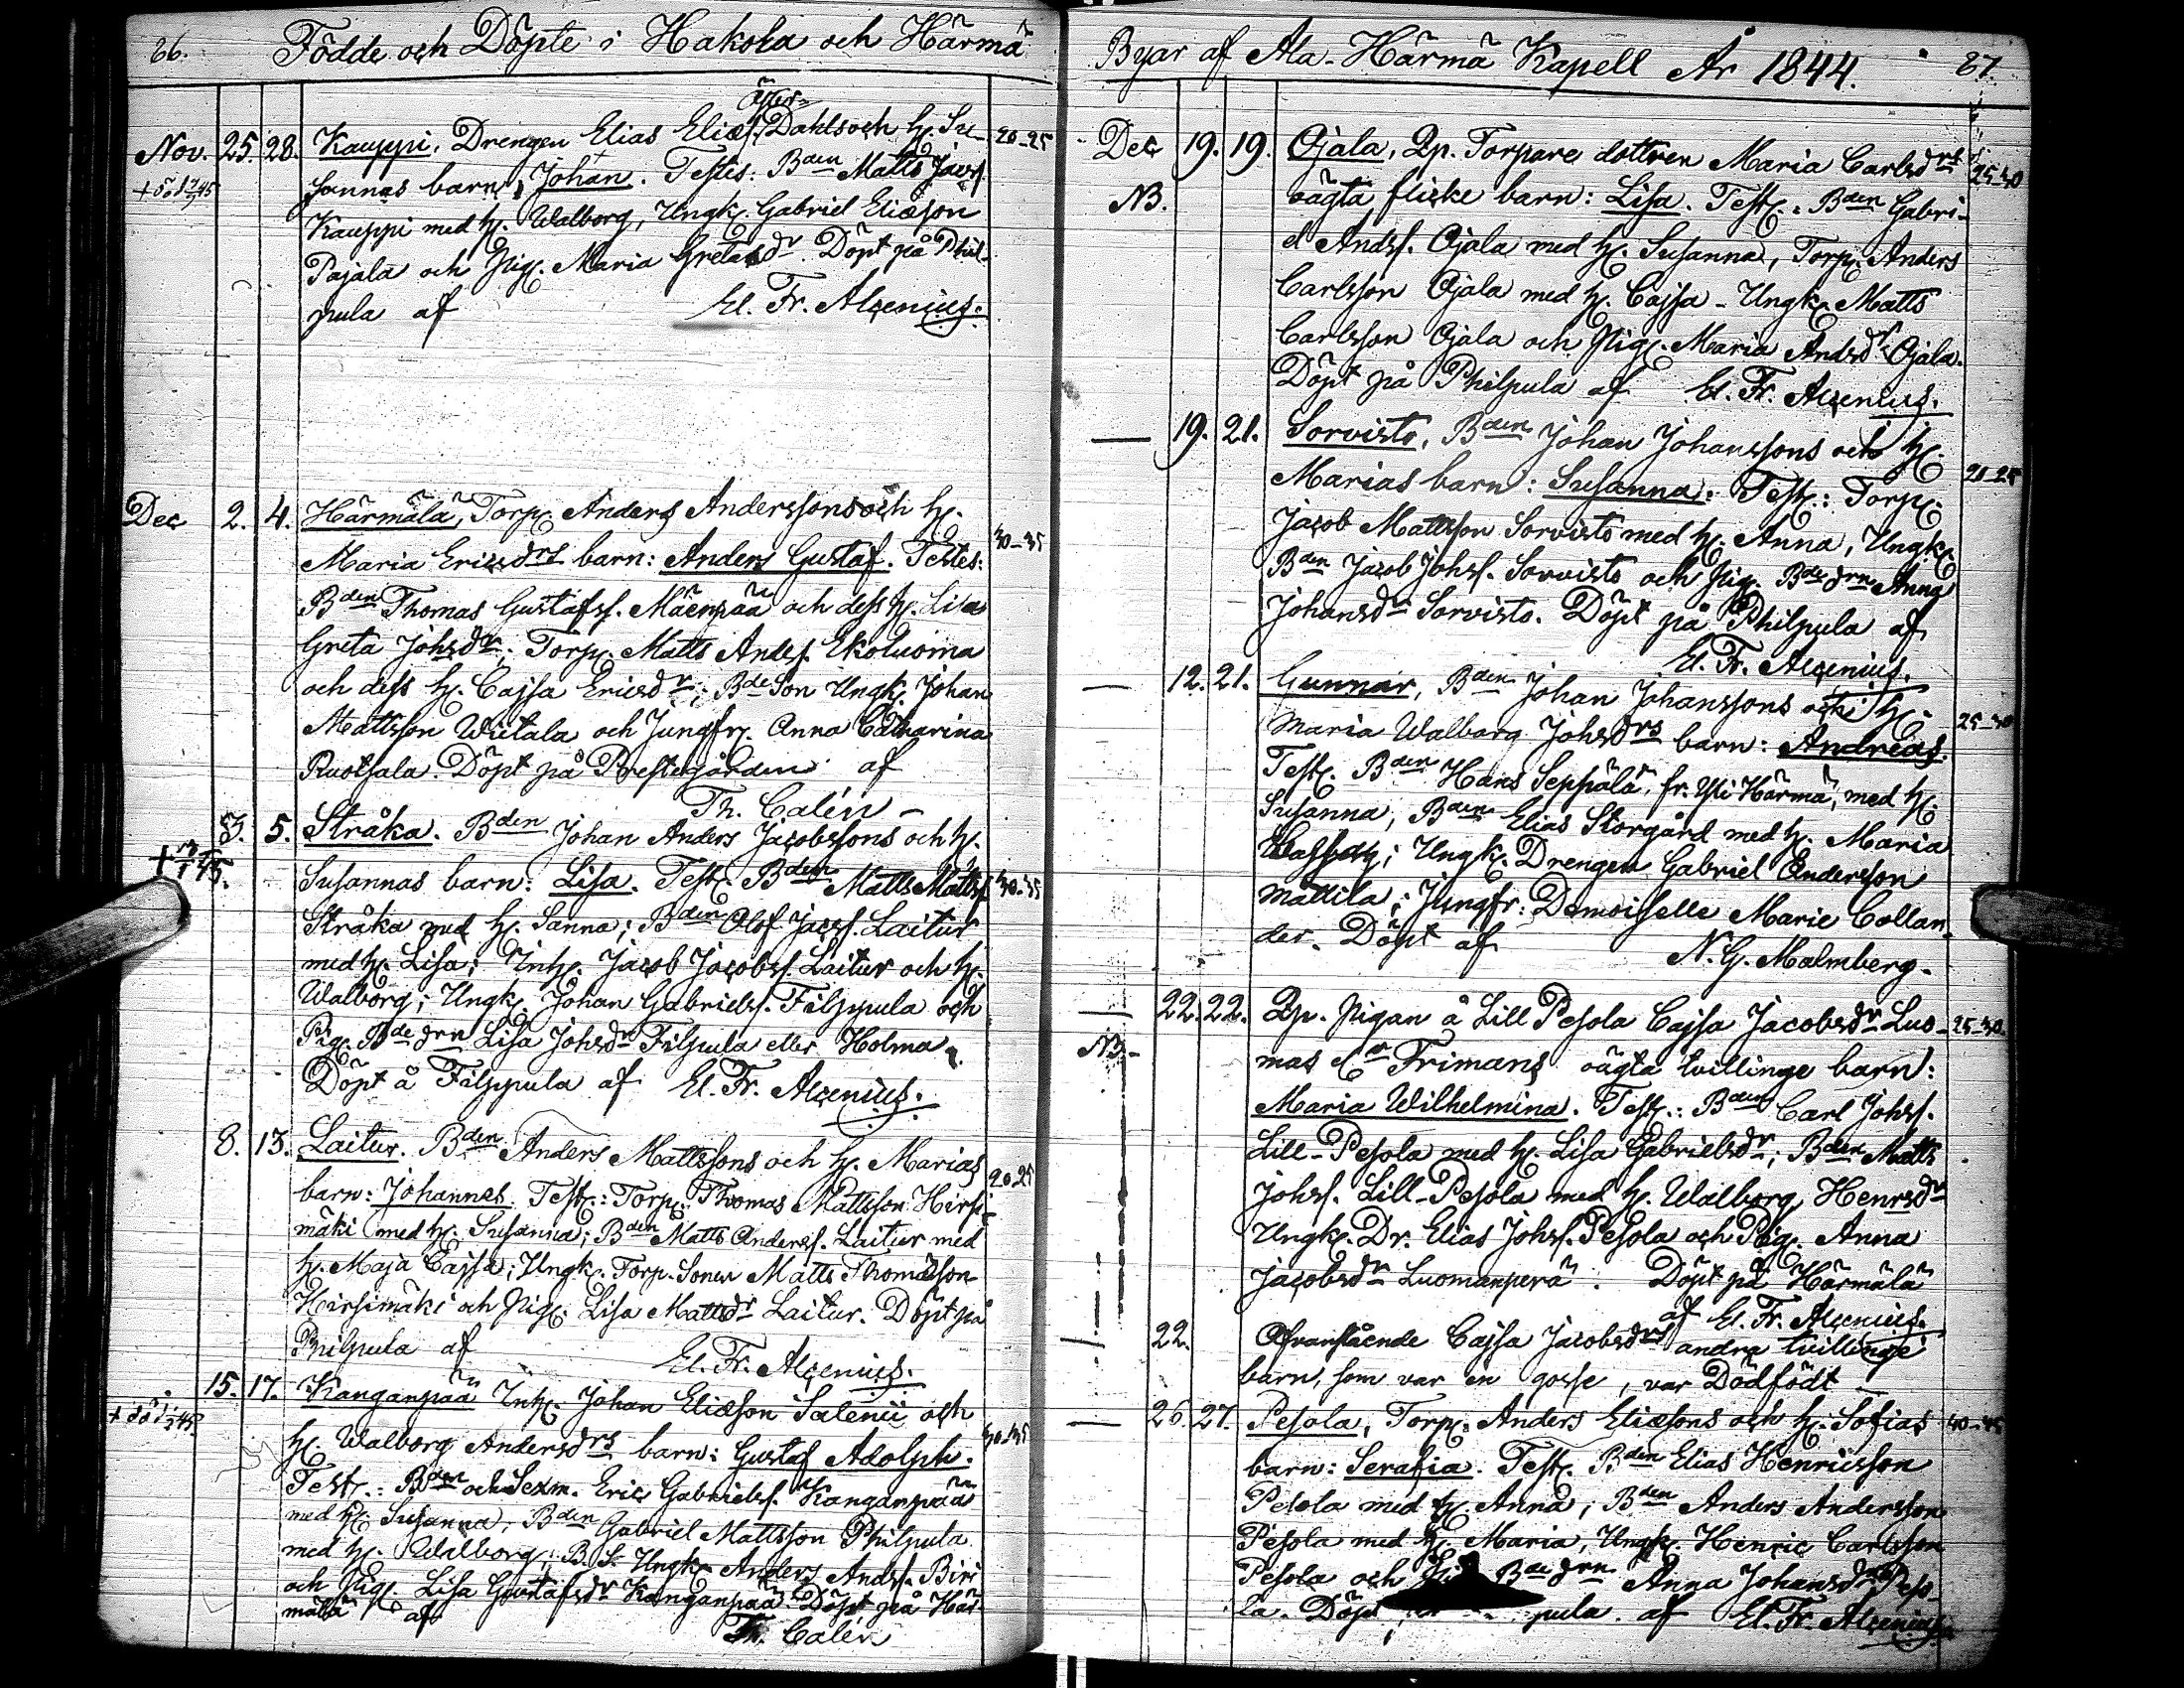 86. Födde och Döpte i Hakola och Härmä
Nov. 25. 28. Kauppi, Drengen Elias Eliæs. Dahls och h. Su- 20-25
sannas barn, Johan. Testes: Bden Matts Jacs.
Kauppi med h. Walborg, Ungk. Gabriel Eliæson
Pajala och Pig. Maria Gretasdr. Döpt på Phil-
pula af El. Fr. Alcenius.
Dec 2. 4. Härmälä, Torp. Anders Anderssons och h.
Maria Ericsdrs barn: Anders Gustaf. Testes: 30-35
Bden Thomas Gustafss. Mäenpää och dess h. Lisa
Greta Johsdr; Torp. Matts Andss. Ekoluoma
och dess h. Cajsa Ericsdr; Bde Son Ungk. Johan
Mattsson Wiitala och Jungfr. Anna Catharina
Ruotsala. Döpt på Prestegården af
Th. Calén
3. 5. Stråka. Bden Johan Anders Jacobssons och h.
Susannas barn: Lisa. Test. Bden Matts Mattss. 30-35
Stråka med h. Sanna; Bden Olof Jacss. Laitur
med h. Lisa; Inh. Jacob Jacobss. Laitur och h.
Walborg; Ungk. Johan Gabrielss. Filppula och
Pig. Bde drn Lisa Johsdr Filpula eller Holma.
Döpt å Filppula af El. Fr. Alcenius.
8. 13. Laitur. Bden Anders Mattssons och h. Marias 20-25
barn: Johannes. Test.: Torp. Thomas Mattsson Hirsi-
mäki med h. Susanna; Bden Matts Anderss. Laitur med
h. Maja Cajsa; Ungk. Torp. Sonen Matts Thomasson
Hirsimäki och Pig. Lisa Mattsdr Laitur. Döpt på
Philpula af El. Fr. Alcenius.
15. 17. Kanganpää Inh. Johan Eliæson Salenii och
h. Walborg Andersdrs barn: Gustaf Adolph. 30-35
Test.: Bden och Sexm. Eric Gabrielss. Kanganpää
med h. Susanna; Bden Gabriel Mattsson Philpula
med h. Walborg; B. S. Ungk. Anders Andss. Biri
och Pig. Lisa Gustafsdr Kanganpää. Döpt på Här-
mälä af Th. Calén
Byar af Ala-Härmä Kapell År 1844. 87.
Dec 19. 19. Ojala, Bp. Torpare dottren Maria Carlsdrs 25-30
NB. oägta flicke barn: Lisa. Test.: Bden Gabri-
el Andss. Ojala med h. Susanna, Torp. Anders
Carlsson Ojala med h. Cajsa - Ungk. Matts
Carlsson Ojala och Pig. Maria Andsdr Ojala.
Döpt på Philpula af El. Fr. Alcenius.
19. 21. Sorvisto, Bden Johan Johanssons och h.
Marias barn: Susanna. Test.: Torp. 20-25
Jacob Mattsson Sorvisto med h. Anna, Ungk.
Bden Jacob Johss. Sorvisto och Pig. Bde drn Anna
Johansdr Sorvisto. Döpt på Philpula af
El. Fr. Alcenius.
12. 21. Gunnar, Bden Johan Johanssons och h.
Maria Walborg Johsdrs barn: Andreas. 25-30
Test. Bden Hans Seppälä, fr. Yli Härmä, med h.
Susanna; Bden Elias Storgård med h. Maria
Ungk. Drengen Gabriel Andersson
Mattila; Jungfr: Demoiselle Marie Collan-
der. Döpt af N. G. Malmberg.
22. 22. Bp. Pigan å Lill Pesola Cajsa Jacobsdr Luo- 25-30
NB. mas Frimans oägta tvillinge barn:
Maria Wilhelmina. Test.: Bden Carl Johss.
Lill-Pesola med h. Lisa Gabrielsdr; Bden Matts
Johss. Lill-Pesola med h. Walborg Henrsdr
Ungk. Dr. Elias Johss. Pesola och Pig. Anna
Jacobsdr Luomanperä. Döpt på Härmälä
af El. Fr. Alcenius.
22. Ofvanstående Cajsa Jacobsdrs andra tvillinge
barn, som var en gosse, var Dödfödt
26. 27. Pesola, Torp. Anders Eliæsons och h. Sofias 40-45
barn: Serafia. Test. Bden Elias Henricsson
Pesola med h. Anna; Bden Anders Andersson
Pesola med h. Maria, Ungk. Henric Carlsson
Pesola och Bde drn Anna Johansdr Peso-
la. Döpt pula af El. Fr. Alcenius